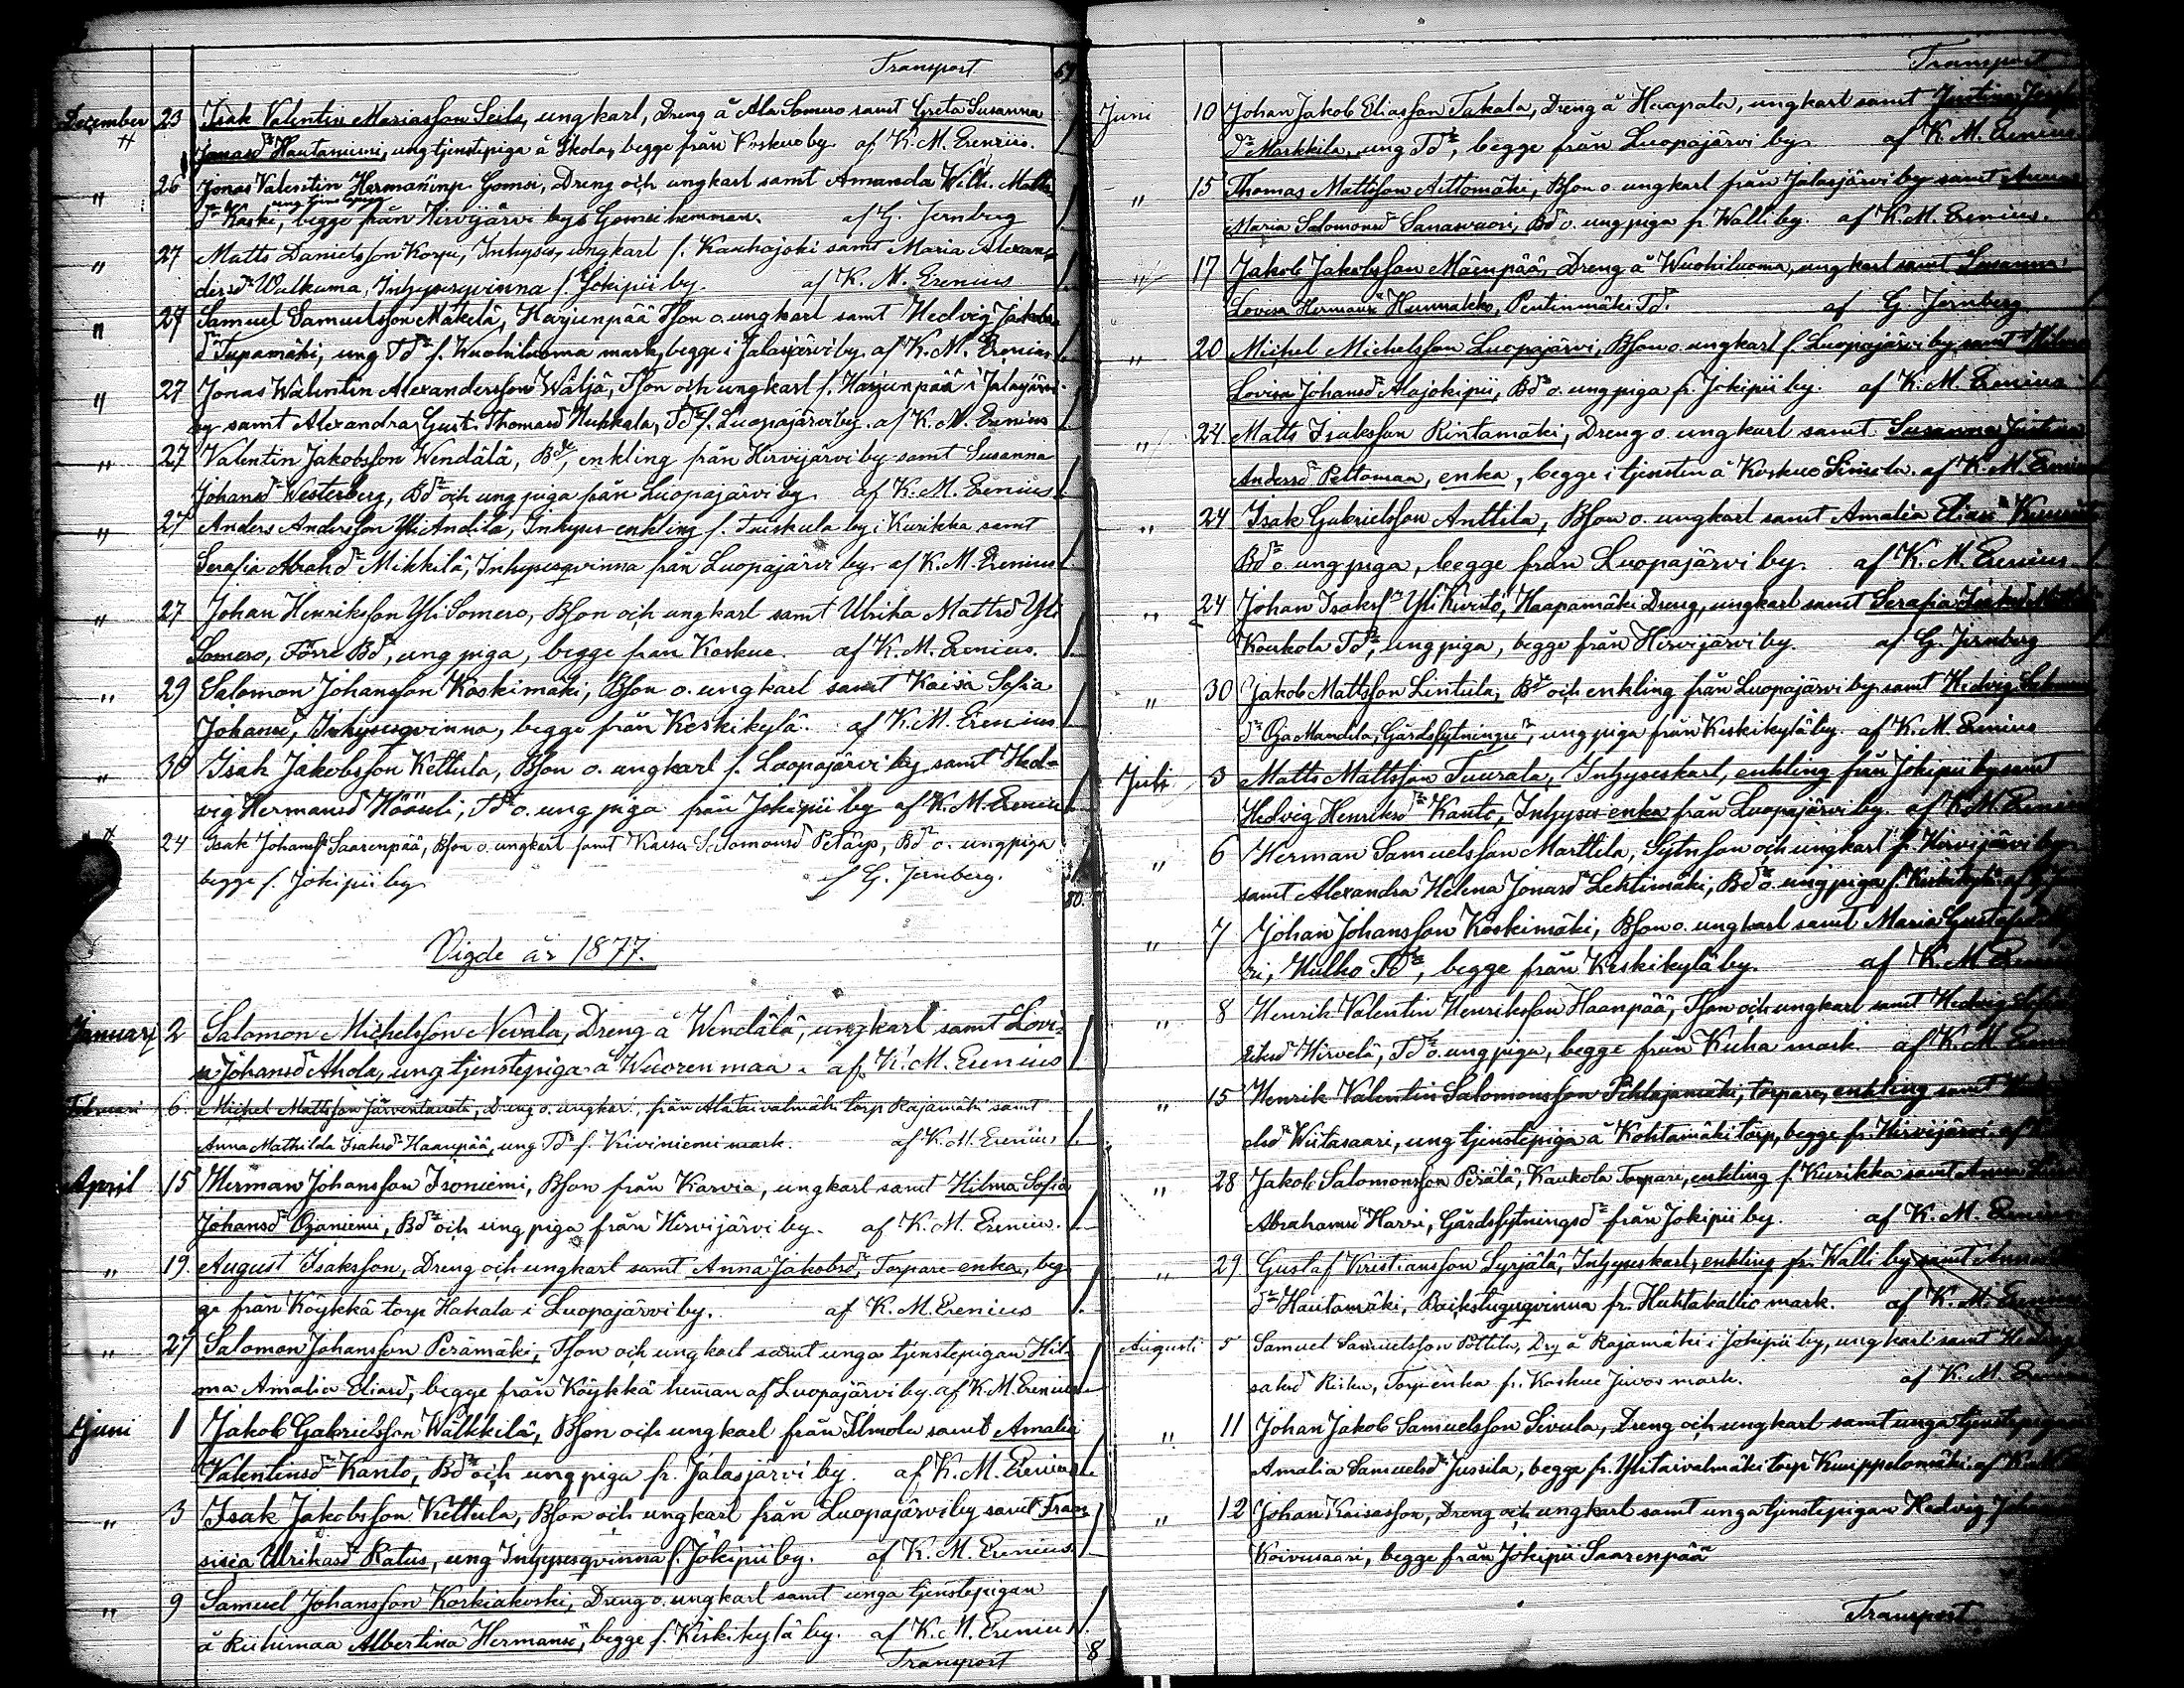 Transport 69
December 23 Isak Valentin Mariasson Seila, ungkarl, Dreng å Ala Somero samt Greta Susanna
Jonasd:r Hautaniemi, ung tjenstpiga å Skola, begge från Koskue by. af K. M. Erenius. 1
" 26 Jonas Valentin Herman Gomsi, Dreng och ungkarl samt Amanda Wilh. Matts
ung tjenstepiga
d:r Koski, begge från Hirvijärvi by Gomsi hemman. af G. Jernberg
" 27 Matts Danielsson Korpu, Inhyses, ungkarl f. Kauhajoki samt Maria Alexan-
dersd:r Walkama, Inhysesqvinna f. Jokipii by. af K. M. Erenius 1.
" 27 Samuel Samuelsson Mäkelä, Harjunpää Tson o. ungkarl samt Hedvig Jakobs
d:r Tupamäki, ung Td:r f. Wuohiluoma mark, begge i Jalasjärvi by. af K. M. Erenius 1.
" 27 Jonas Walentin Alexandersson Wäljä, Tson och ungkarl f. Harjunpää i Jalasjärvi
by samt Alexandra Gust. Thomasd:r Hukkala, Td:r f. Luopajärvi by. af K. M. Erenius 1.
" 27 Valentin Jakobsson Wendälä, Bde, enkling från Hirvijärvi by samt Susanna
Johansd:r Westerberg, Bd:r och ung piga från Luopajärvi by. af K. M. Erenius 1.
" 27 Anders Andersson Yli Andila, Inhyses enkling f. Tuiskula by i Kurikka samt
Serafia Abrahd:r Mikkilä, Inhysesqvinna från Luopajärvi by. af K. M. Erenius 1.
" 27 Johan Henriksson Yli Somero, Bson och ungkarl samt Ulrika Mattsd:r Yli
Somero, Förre Bd:r, ung piga, begge från Koskue. af K. M. Erenius. 1.
" 29 Salomon Johansson Koskimäki, Bson o. ungkarl samt Kaisa Sofia
Johansd:r, Inhysesqvinna, begge från Keskikylä. af K. M. Erenius 1.
" 30 Isak Jakobsson Kettula, Bson o. ungkarl f. Luopajärvi by samt Hed-
vig Hermansd:r, Td:r o. ung piga från Jokipii by af K. M. Erenius 1.
24 Isak Johanss:n Saarenpää, Bson o. ungkarl samt Kaisa Salomonsd:r, Bd:r o. ung piga
begge f. Jokipii by af G. Jernberg. 1
80.
Vigde år 1877.
Januari 2 Salomon Michelsson Nevala, Dreng å Wendälä, ungkarl samt Lovi-
sa Johansd:r Ahola, ung tjenstepiga å Wuorenmaa. af K. M. Erenius 1
Februari 6. Michel Mattsson Järventausta, Dreng o. ungkarl, från Alataivalmäki torp Rajamäki samt
Anna Mathilda Isaksd:r Haanpää, ung Td:r f. Kiviniemi mark. af K. M. Erenius 1.
April 15 Herman Johansson Isoniemi, Bson från Karvia, ungkarl samt Hilma Sofia
Johansd:r Ojaniemi, Bd:r och ung piga från Hirvijärvi by. af K. M. Erenius. 1.
" 19. August Isaksson, Dreng och ungkarl samt Anna Jakobsd:r, Torpare enka, beg-
ge från Köykkä torp Hakala i Luopajärvi by. af K. M. Erenius 1.
" 27 Salomon Johansson Perämäki, Tson och ungkarl samt unga tjenstepigan Hil-
ma Amalia Eliasd:r, begge från Köykkä heman af Luopajärvi by. af K. M. Erenius
Juni 1 Jakob Gabrielsson Wälkkilä, Bson och ungkarl från Ilmola samt Amalia
Valentinsd:r Kanto, Bd:r och ung piga fr. Jalasjärvi by. af K. M. Erenius 1.
" 3 Isak Jakobsson Kettula, Bson och ungkarl från Luopajärvi by samt Fran-
siska Ulrikasd:r Ratus, ung Inhysesqvinna f. Jokipii by. af K. M. Erenius. 1
" 9 Samuel Johansson Korkiakoski, Dreng o. ungkarl samt unga tjenstepigan
å Riihimaa Albertina Hermansd:r, begge f. Keskikylä by. af K. M. Erenius 1.
Transport 8
Transport
Juni 10 Johan Jakob Eliasson Takala, Dreng å Haapala, ungkarl samt Justina
d:r Markkila, ung Td:r, begge från Luopajärvi by af K. M. Erenius
" 15 Thomas Mattsson Aittomäki, Bson o. ungkarl från Jalasjärvi by samt Anna
Maria Salomonsd:r Sanasvuori, Bd:r o. ung piga fr. Walli by. af K. M. Erenius. 1.
" 17 Jakob Jakobsson Mäenpää, Dreng å Wuohiluoma, ungkarl samt Susanna
Lovisa Hermansd:r Hunnakko, Pentinmäki Td:r. af G. Jernberg 1
" 20 Michel Michelsson Luopajärvi, Bson o. ungkarl f. Luopajärvi by samt Hilma
Lovisa Johansd:r Alajokipii, Bd:r o. ung piga fr. Jokipii by. af K. M. Erenius 1
" 24 Matts Isaksson Rintamäki, Dreng o. ungkarl samt Susanna Justina
Andersd:r Peltomaa, enka, begge i tjensten å Koskue. af K. M. Erenius
" 24 Isak Gabrielsson Anttila, Bson o. ungkarl samt Amalia Eliasd:r
Bd:r o. ung piga, begge från Luopajärvi by. af K. M. Erenius. 1.
" 24 Johan Isakss:n Yli Kivistö, Haapamäki Dreng, ungkarl samt Serafia
Koukola Td:r, ung piga, begge från Hirvijärvi by. af G. Jernberg 1
" 30 Jakob Mattsson Lintula, Bde och enkling från Luopajärvi by samt Hedvig
d:r Oja Mandila, Gårdssytningsd:r, ung piga från Keskikylä by. af K. M. Erenius
Juli 3 Matts Mattsson Tuurala, Inhyseskarl, enkling från Jokipii by samt
Hedvig Henriksd:r Kanto, Inhyses enka från Luopajärvi by. af K. M. Erenius
" 6 Herman Samuelsson Marttila, Sytnson och ungkarl fr. Hirvijärvi by
samt Alexandra Helena Jonasd:r Lehtimäki, Bd:r o. ung piga f. Keskikylä af
" 7 Johan Johansson Koskimäki, Bson o. ungkarl samt Maria
ri, Kulho Td:r, begge från Keskikylä by. af K. M.
" 8 Henrik Valentin Henriksson Haanpää, Tson och ungkarl samt Hedvig
riksd:r Hirvelä, Td:r o. ung piga, begge från Kuha mark. af K. M.
" 15 Henrik Valentin Salomonsson Pihlajamäki, torpare, enkling samt
elsd:r Wiitasaari, ung tjenstepiga å Kohtamäki torp, begge fr. Hirvijärvi. af
" 28 Jakob Salomonsson Perälä, Kaukola Torpare, enkling f. Kurikka samt Anna
Abrahamsd:r Harri, Gårdssytningsd:r från Jokipii by. af K. M. Erenius
" 29 Gustaf Kristiansson Syrjälä, Inhyseskarl, enkling fr. Walli by samt Anna
d:r Hautamäki, Backstuguqvinna fr. Huhtakallio mark. af K. M. Erenius
Augusti 5 Samuel Samuelsson Pottila, Drg å Rajamäki i Jokipii by, ungkarl samt Hedvig
saksd:r Risku, Torp enka fr. Koskue Juvos mark. af K. M. Erenius
" 11 Johan Jakob Samuelsson Sivula, Dreng och ungkarl samt unga tjenstepigan
Amalia Samuelsd:r Jussila, begge fr. Ylitaivalmäki torp Knuippelomäki. af
" 12 Johan Kaisasson, Dreng och ungkarl samt unga tjenstepigan Hedvig
Koivusaari, begge från Jokipii Saarenpää
Transport